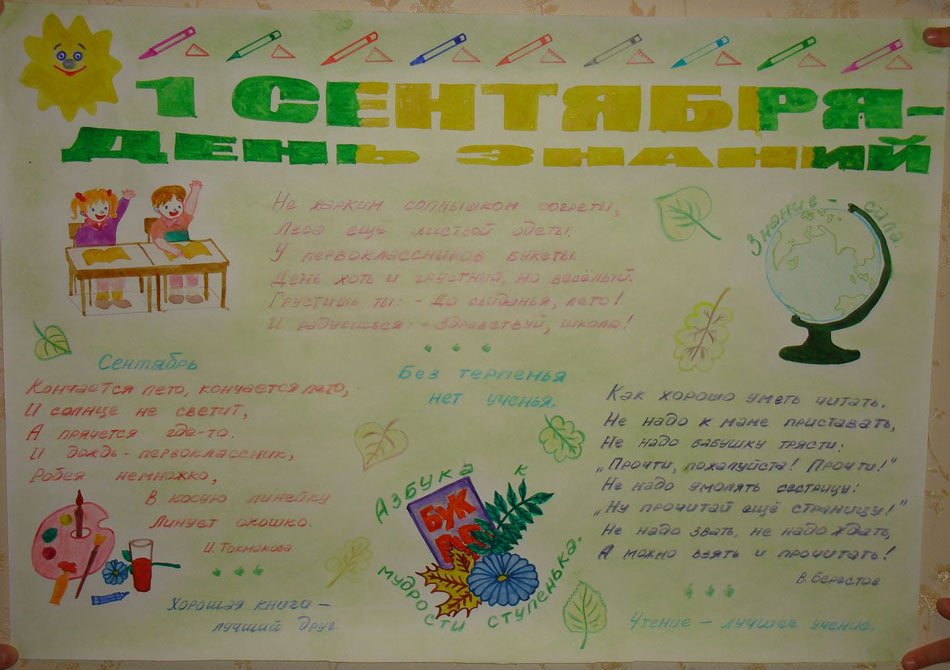 1 СЕНТЯБРЯ-
ДЕНЬ ЗНАНИЙ
Не жарким солнышком согреты,
Леса ещё листвой одеты.
У первоклассников букеты.
День хоть и грустный, но весёлый.
Грустишь ты: - До свиданья, лето!
И радуешься: - Здравствуй, школа!
Знание - сила
Сентябрь
Кончается лето, кончается лето,
И солнце не светит,
А прячется где-то.
И дождь - первоклассник,
Робея немножко,
В косую линейку
Линует окошко.
И. Токмакова
Хорошая книга -
лучший друг.
Без терпенья
нет ученья.
Азбука к
БУК
мудрости ступенька.
Как хорошо уметь читать.
Не надо к маме приставать,
Не надо бабушку трясти:
„Прочти, пожалуйста! Прочти!"
Не надо умолять сестрицу:
„Ну прочитай ещё страницу!"
Не надо звать, не надо ждать,
А можно взять и прочитать!
В. Берестов
Чтение - лучшее учение.